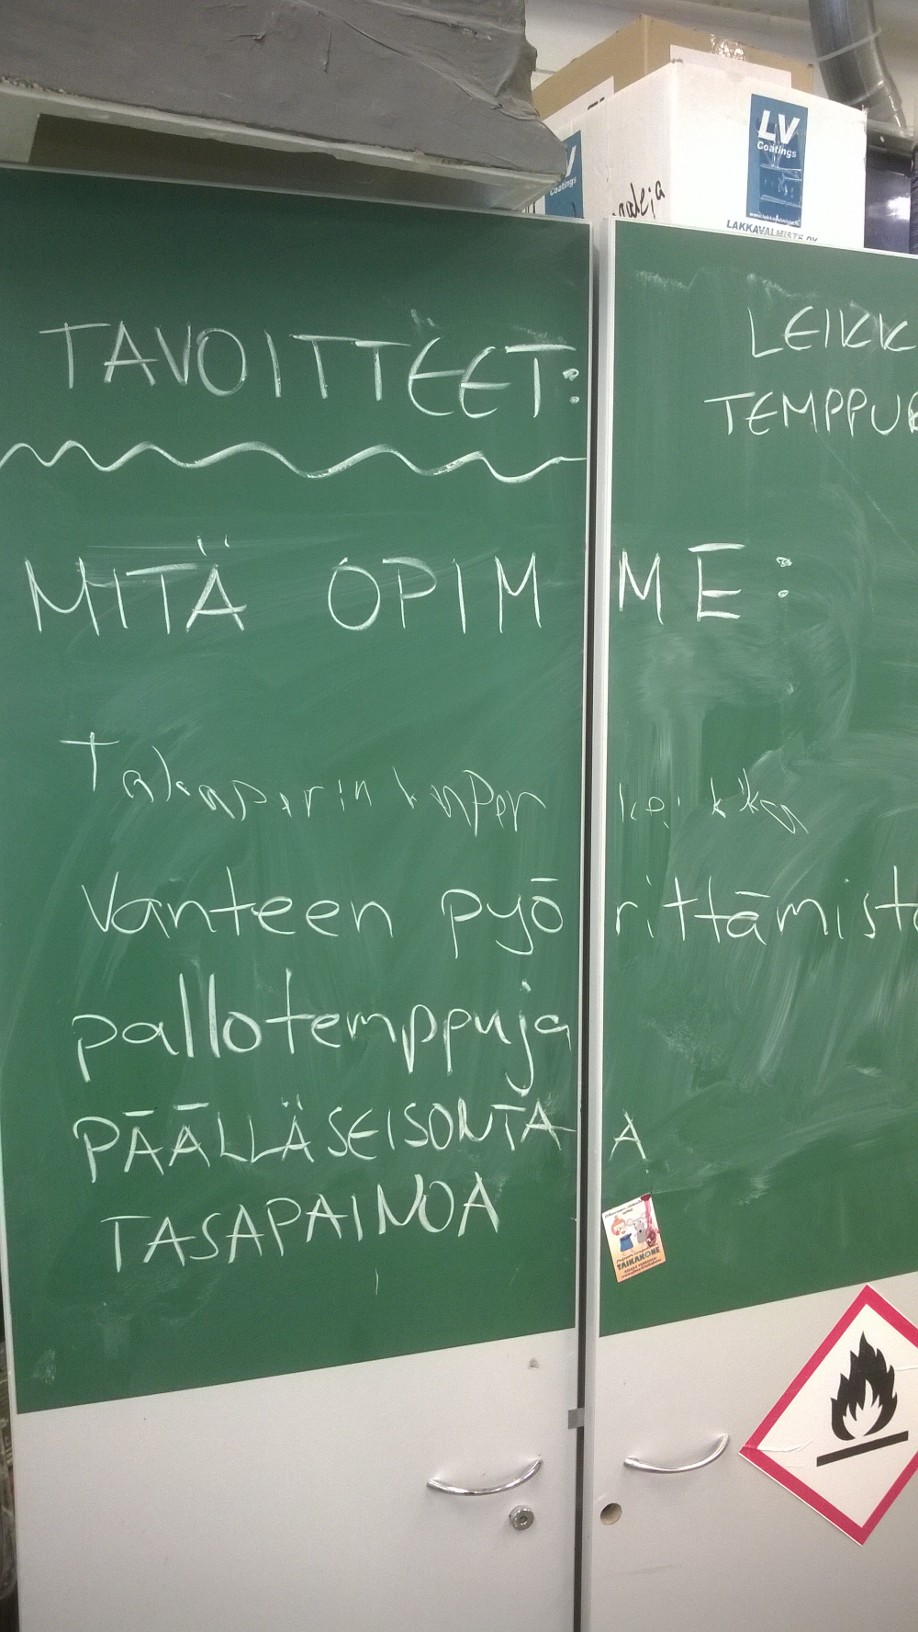 LV
Coatings
LAKKAVALMISTE OY
TAVOITTEET:
LEIKK
TEMPPU
MITÄ OPIMME:
Vanteen pyörittämistä
pallotemppuja
PÄÄLLÄSEISONTAA
TASAPAINOA
TAIKAKONE